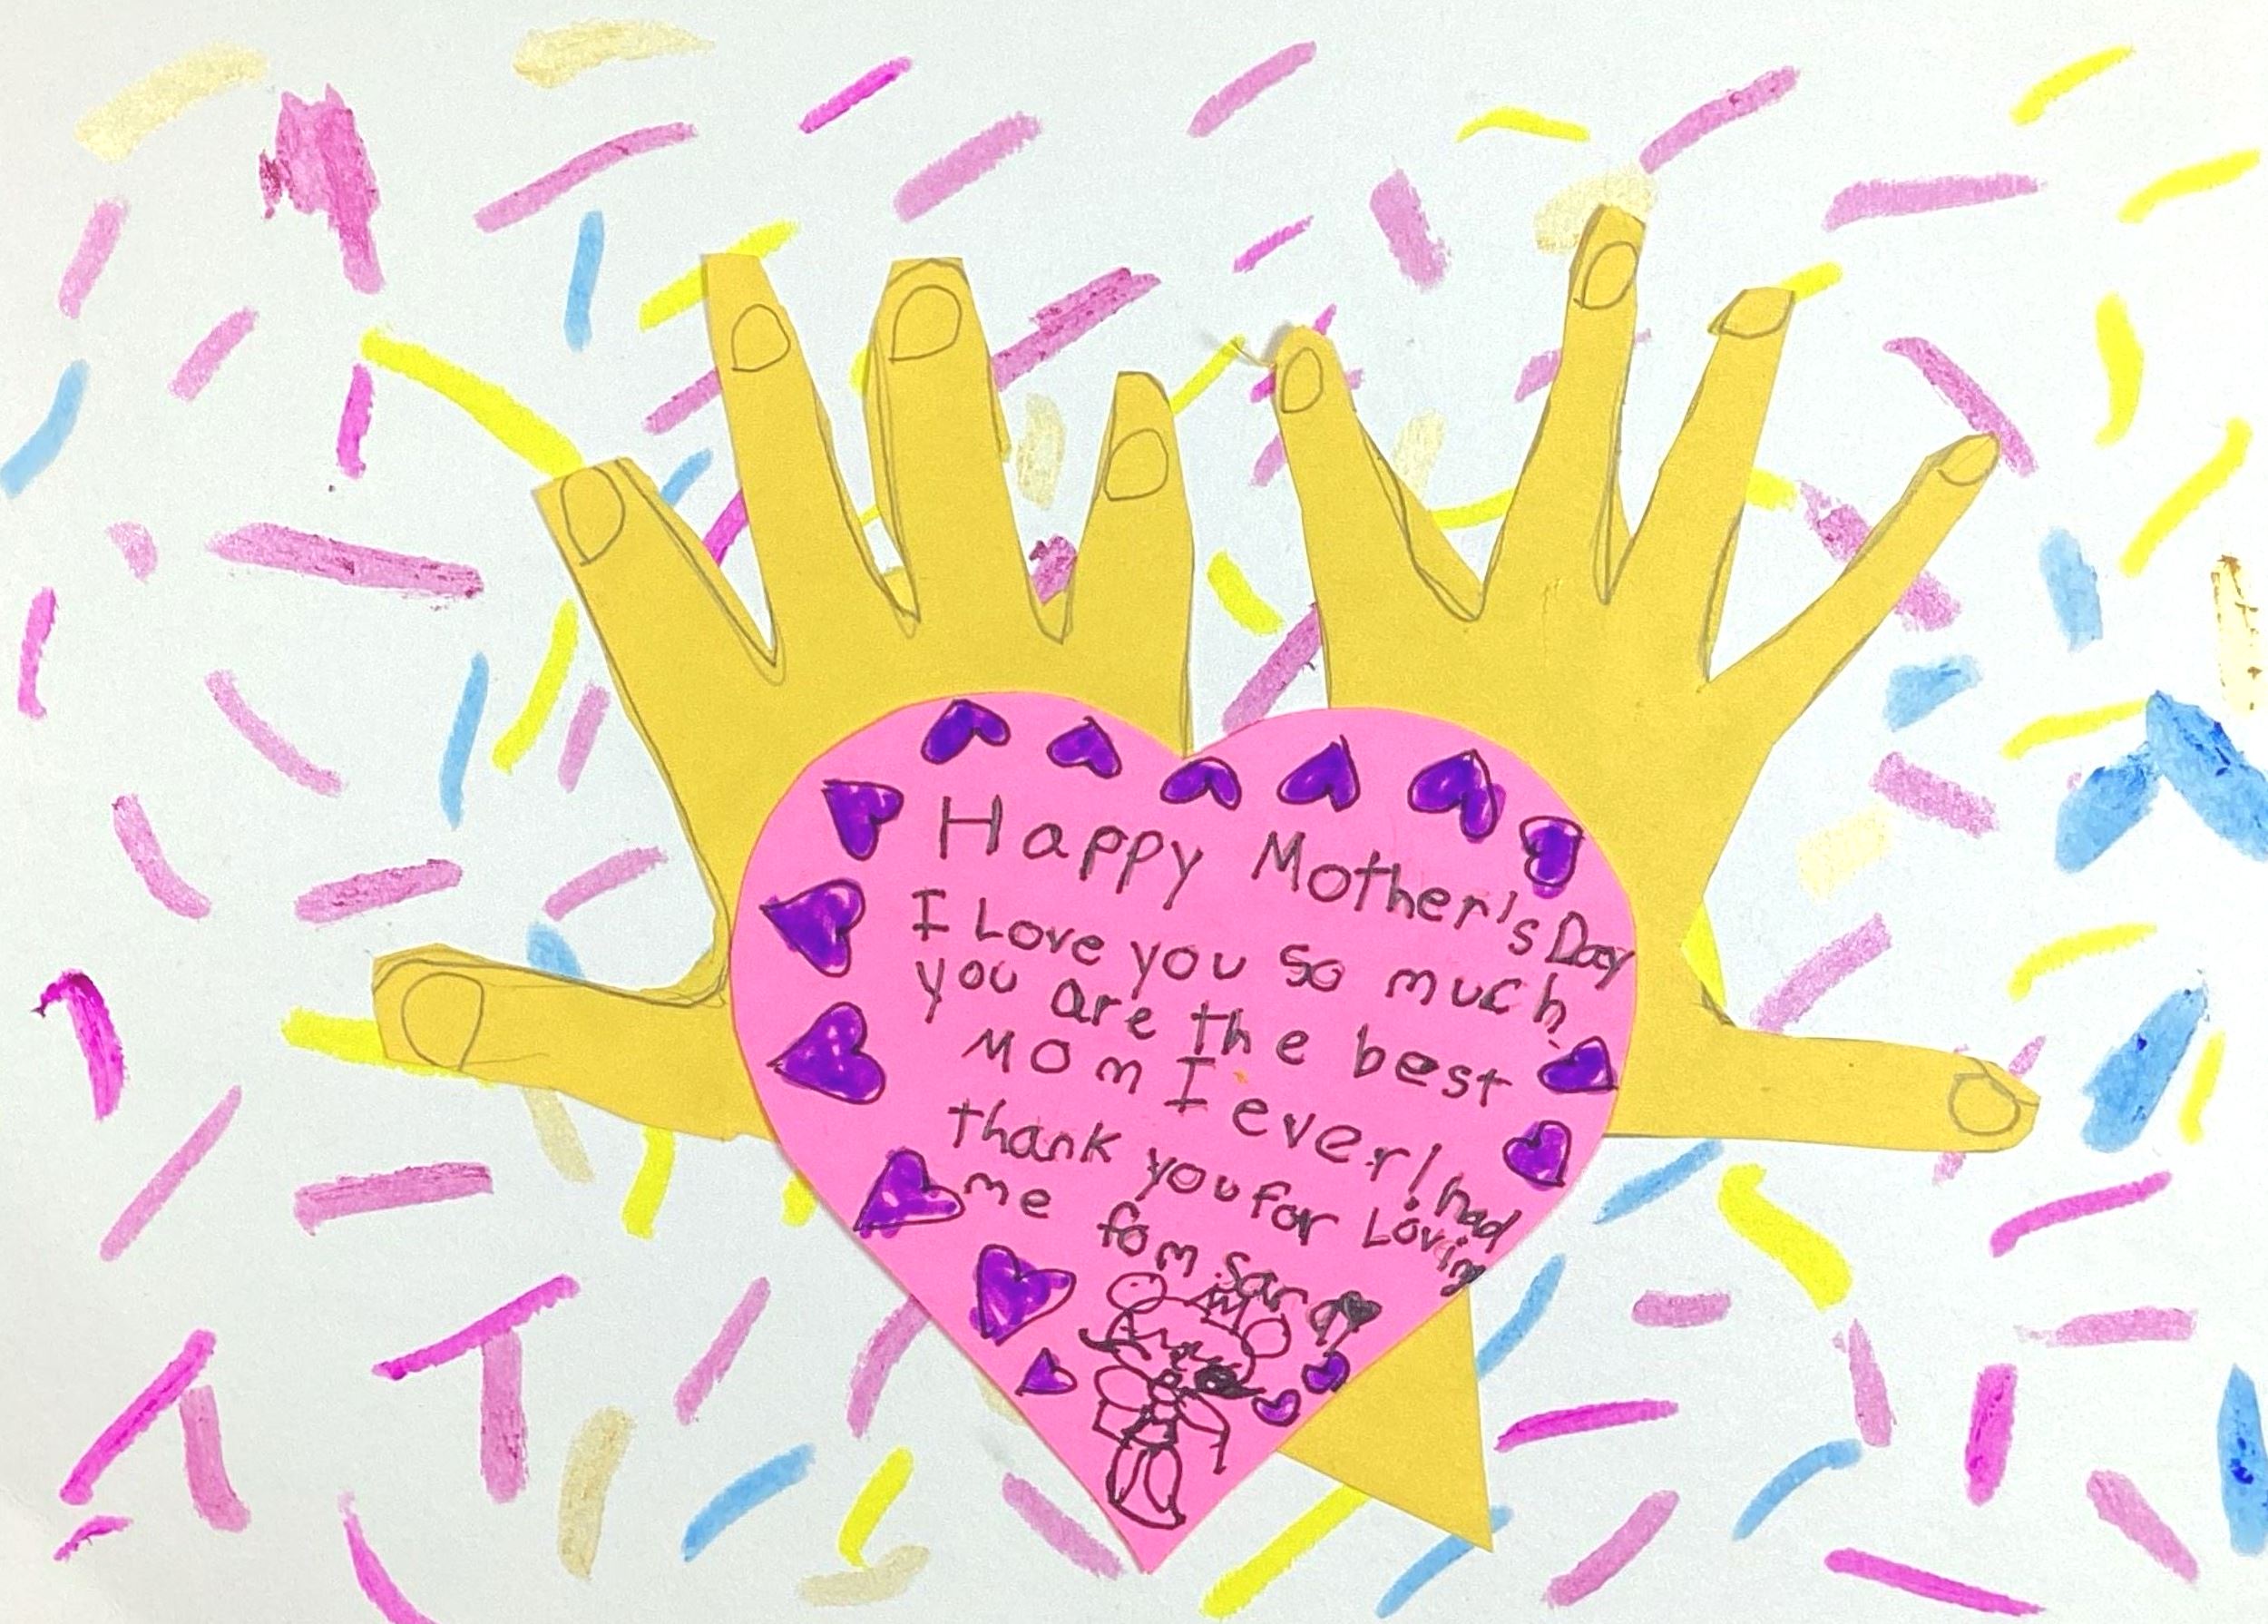 Happy Mother's Day
I Love you so much
you are the best
Mom I ever! had
thank you for Loving
me fom Sara